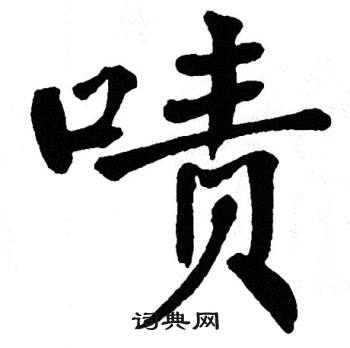 啧
词典网